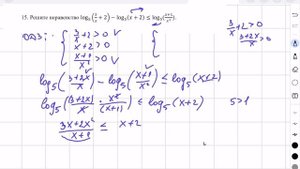 15. Решите неравенство log₅(3/x + 2) − log₅(x + 2) ≤ log₅(
ОДЗ: { 3/x + 2 > 0 V
x + 2 > 0
> 0 V
3/x + 2 > 0
3+2x/x > 0
log₅(3+2x/x) − log₅( ) ≤ log₅(x+2)
log₅(3+2x/x · ) ≤ log₅(x+2) 5>1
3x+2x² ≤ x+2